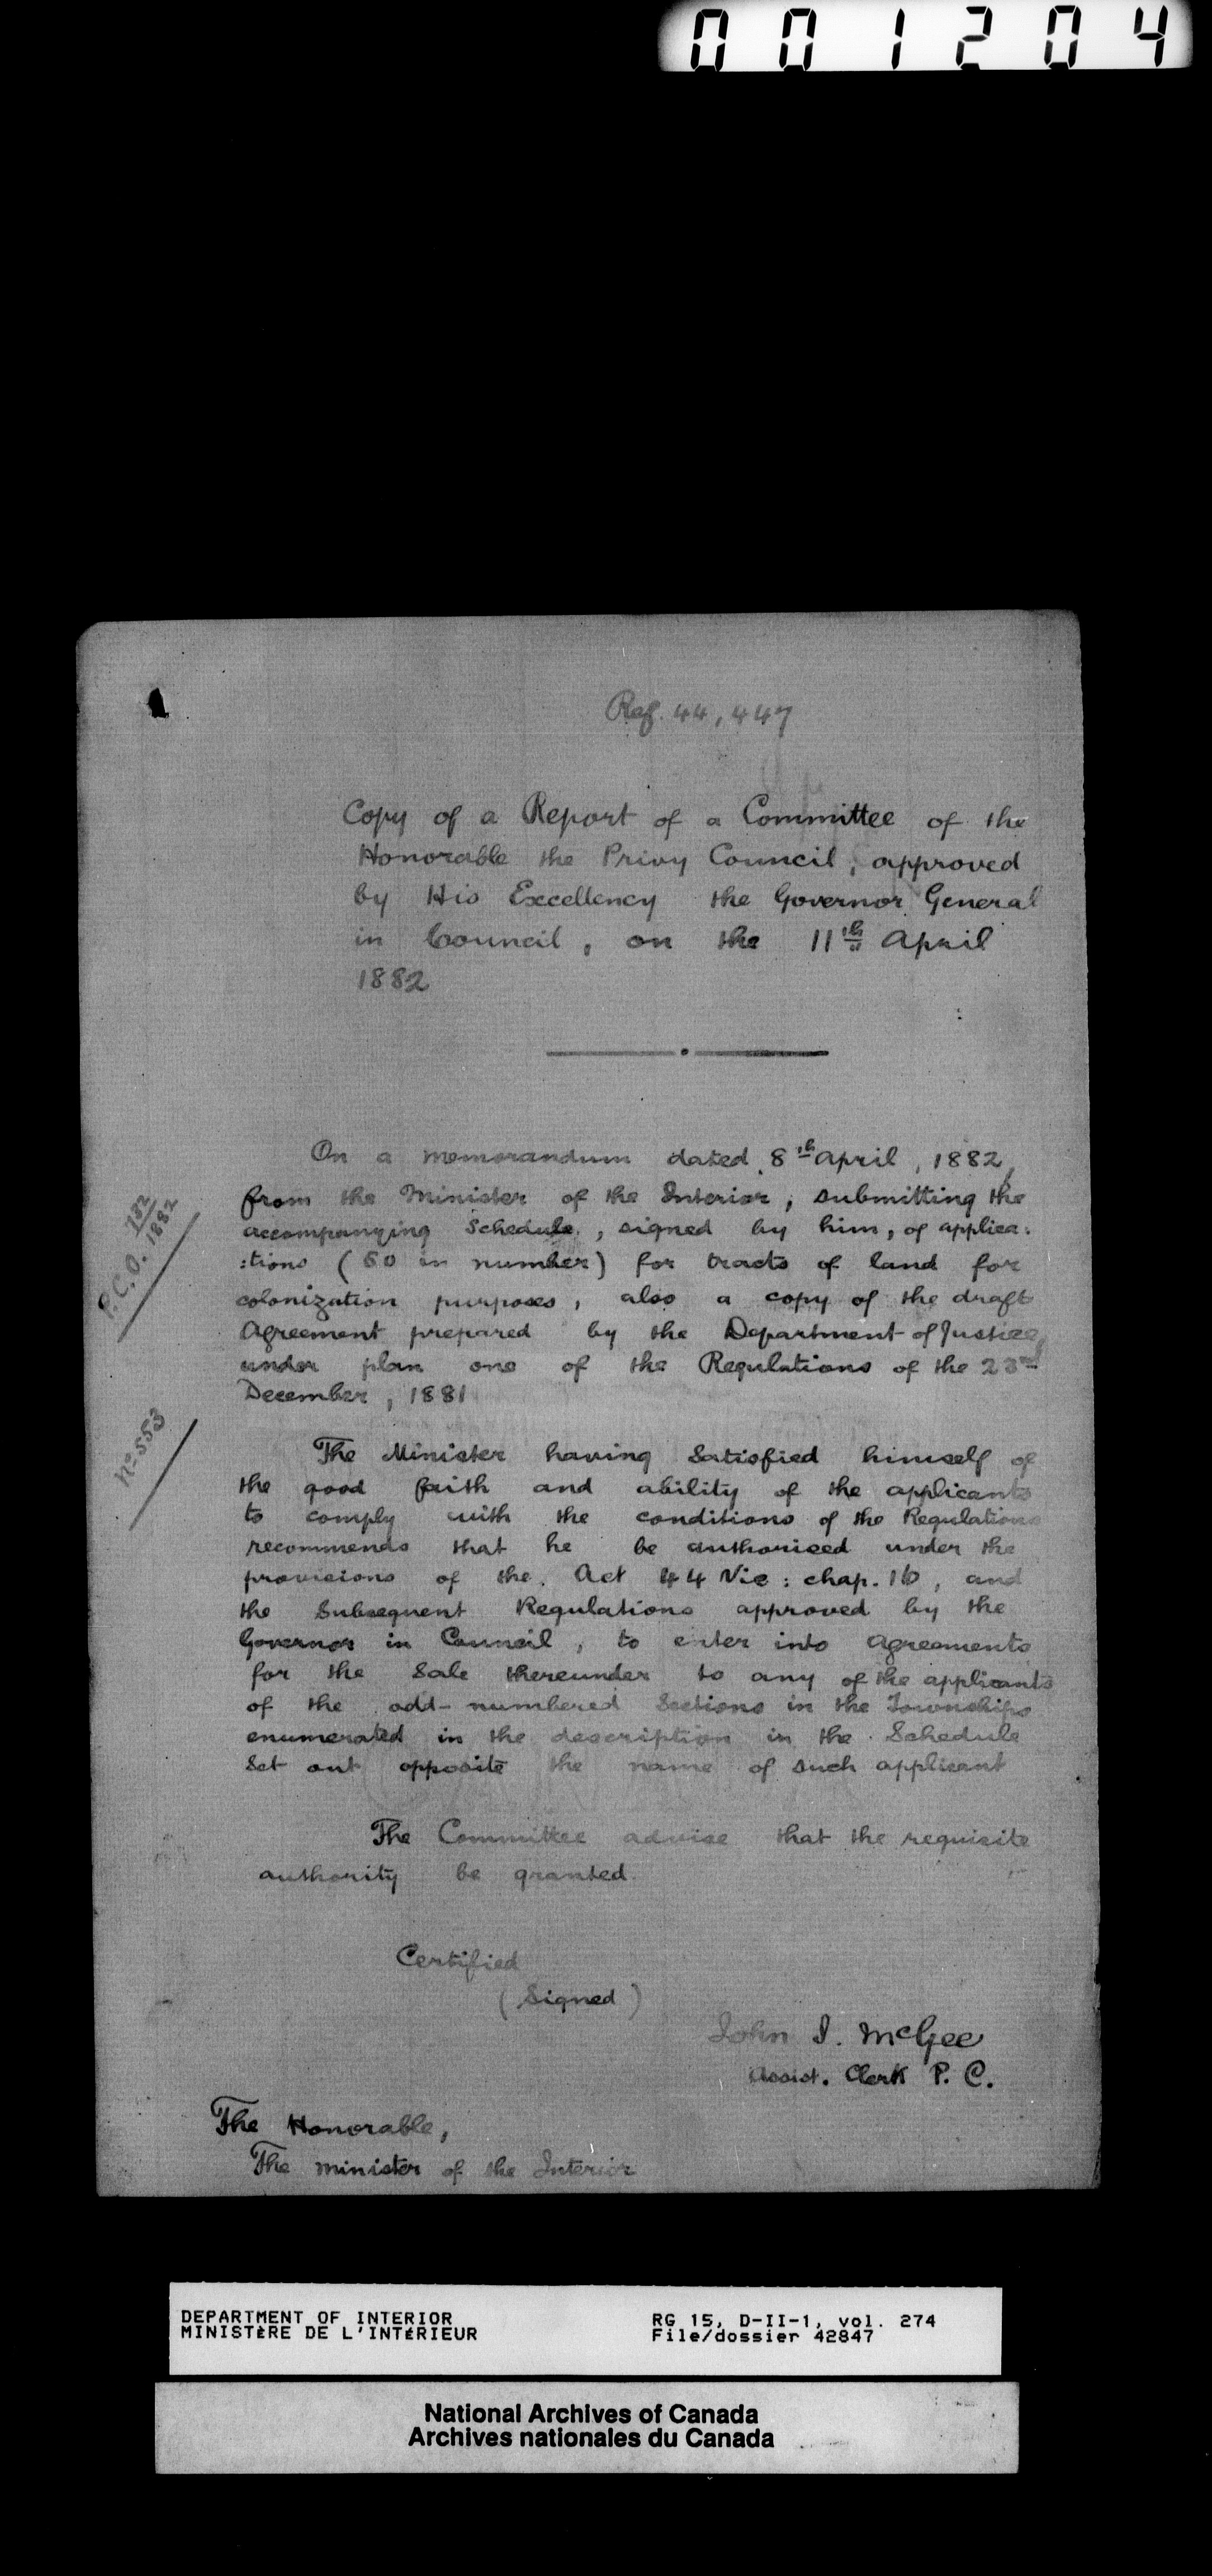 001204
Ref. 44,447
Copy of a Report of a Committee of the
Honorable the Privy Council, approved
by His Excellency the Governor General
in Council, on the 11th April
1882
On a memorandum dated 8th April, 1882,
from the Minister of the Interior, submitting the
accompanying Schedule, signed by him, of applica:
:tions (50 in number) for tracts of land for
colonization purposes, also a copy of the draft
Agreement prepared by the Department of Justice,
under plan one of the Regulations of the 23rd
December, 1881
P.C.O. 782/1882
The Minister having Satisfied himself of
the good faith and ability of the applicants
to comply with the conditions of the Regulations
recommends that he be authorised under the
provisions of the Act 44 Vic: chap. 16, and
the Subsequent Regulations approved by the
Governor in Council, to enter into Agreements
for the Sale thereunder to any of the applicants
of the odd-numbered Sections in the Townships
enumerated in the description in the Schedule
Set out opposite the name of such applicant
No 553
The Committee advise that the requisite
authority be granted
Certified
(Signed)
John J. McGee
Assist. Clerk P. C.
The Honorable,
The Minister of the Interior
DEPARTMENT OF INTERIOR
MINISTÈRE DE L'INTÉRIEUR
RG 15, D-II-1, vol. 274
File/dossier 42847
National Archives of Canada
Archives nationales du Canada